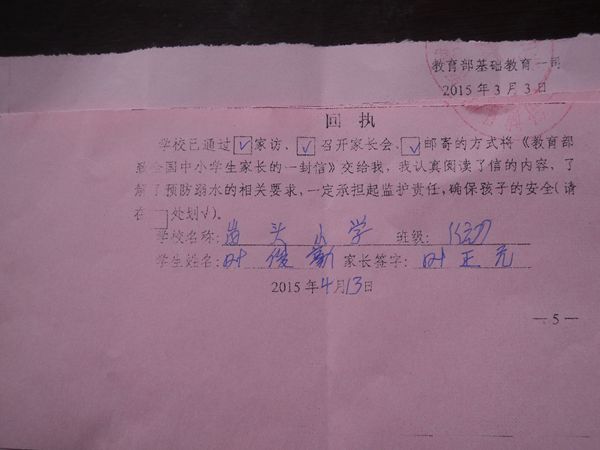 教育部基础教育一司
2015年3月3日
回 执
学校已通过☑家访、☑召开家长会、☑邮寄的方式将《教育部
致全国中小学生家长的一封信》交给我,我认真阅读了信的内容,了
解了预防溺水的相关要求,一定承担起监护责任,确保孩子的安全(请
在□处划√)。
学校名称: 头小学 班级:
学生姓名:叶俊 家长签字:叶正元
2015年4月13日
— 5 —